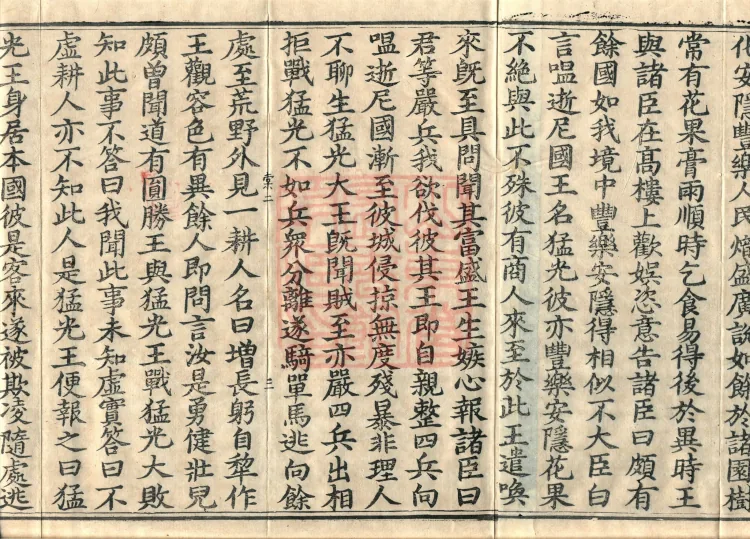 安隱豐樂人民熾盛廣說如餘於諸園樹
常有花果膏雨順時乞食易得後於異時王
與諸臣在髙樓上歡娛恣意告諸臣曰頗有
餘國如我境中豐樂安隱得相似不大臣白
言嗢逝尼國王名猛光彼亦豐樂安隱花果
不絕與此不殊彼有商人來至於此王遣喚
來旣至具問聞其富盛王生嫉心報諸臣曰
君等嚴兵我欲伐彼其王即自親整四兵向
嗢逝尼國漸至彼城侵掠無度殘暴非理人
不聊生猛光大王旣聞賊至亦嚴四兵出相
拒戰猛光不如兵衆分離遂騎單馬逃向餘
二 三
處至荒野外見一耕人名曰增長躬自犂作
王觀容色有異餘人即問言汝是勇健壯兒
頗曾聞道有圓勝王與猛光王戰猛光大敗
知此事不答曰我聞此事未知虛實答曰不
虛耕人亦不知此人是猛光王便報之曰猛
光王身居本國彼是客來遂被欺凌隨處逃